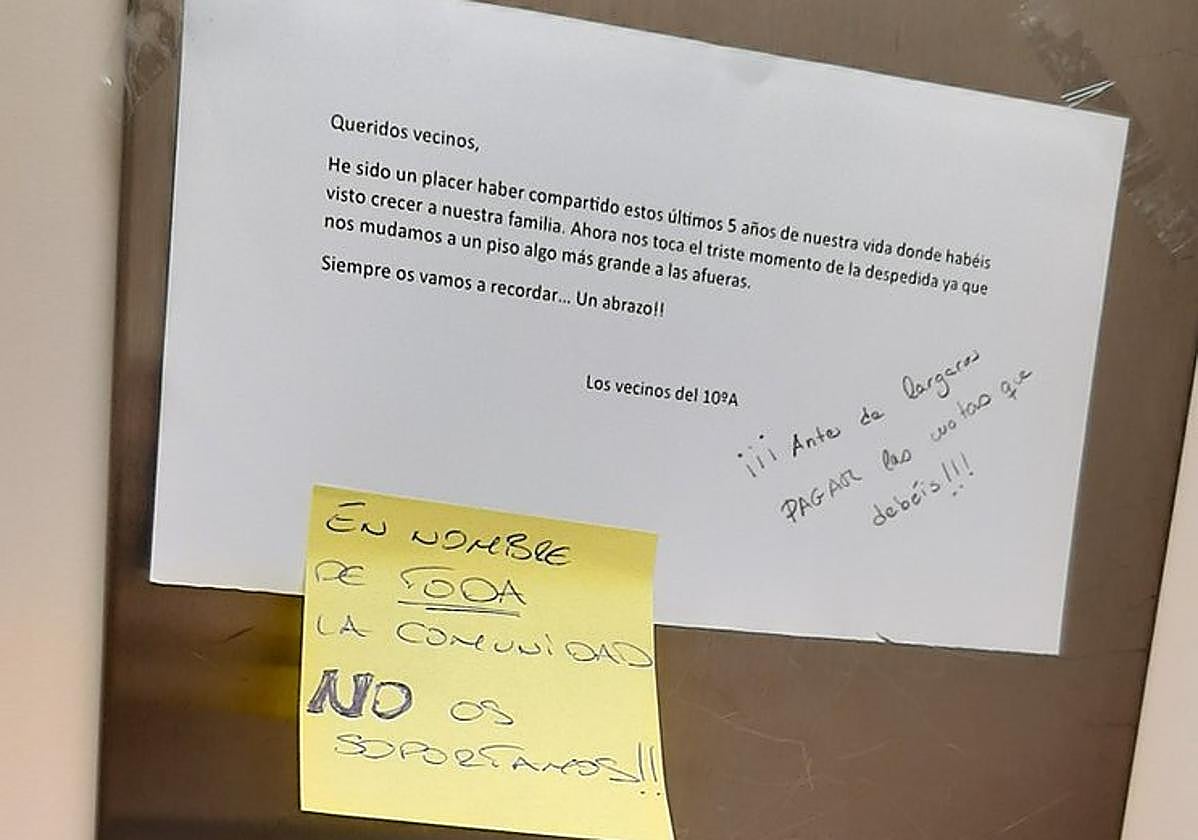 Queridos vecinos,
He sido un placer haber compartido estos últimos 5 años de nuestra vida donde habéis
visto crecer a nuestra familia. Ahora nos toca el triste momento de la despedida ya que
nos mudamos a un piso algo más grande a las afueras.
Siempre os vamos a recordar... Un abrazo!!
Los vecinos del 10ºA
¡¡¡ Antes de largaros
PAGAR las cuotas que
debéis!!!
EN NOMBRE
DE TODA
LA COMUNIDAD
NO OS
SOPORTAMOS!!